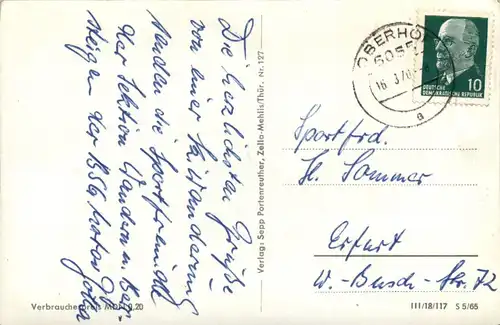 Die herzlichsten Grüße
von einer Skiwanderung
senden die Sportfreunde
der Sektion Wandern u. Berg-
steigen der BSG Motor
Gotha
Verbraucherpreis MDN 0,20
Verlag: Sepp Portenreuther, Zella-Mehlis/Thür. Nr. 127
OBERHOF
6055
16. 3.70
a
DEUTSCHE
DEMOKRATISCHE REPUBLIK
10
Sportfrd.
H. Sommer
Erfurt
W.-Busch-Str. 72
III/18/117 S 5/65